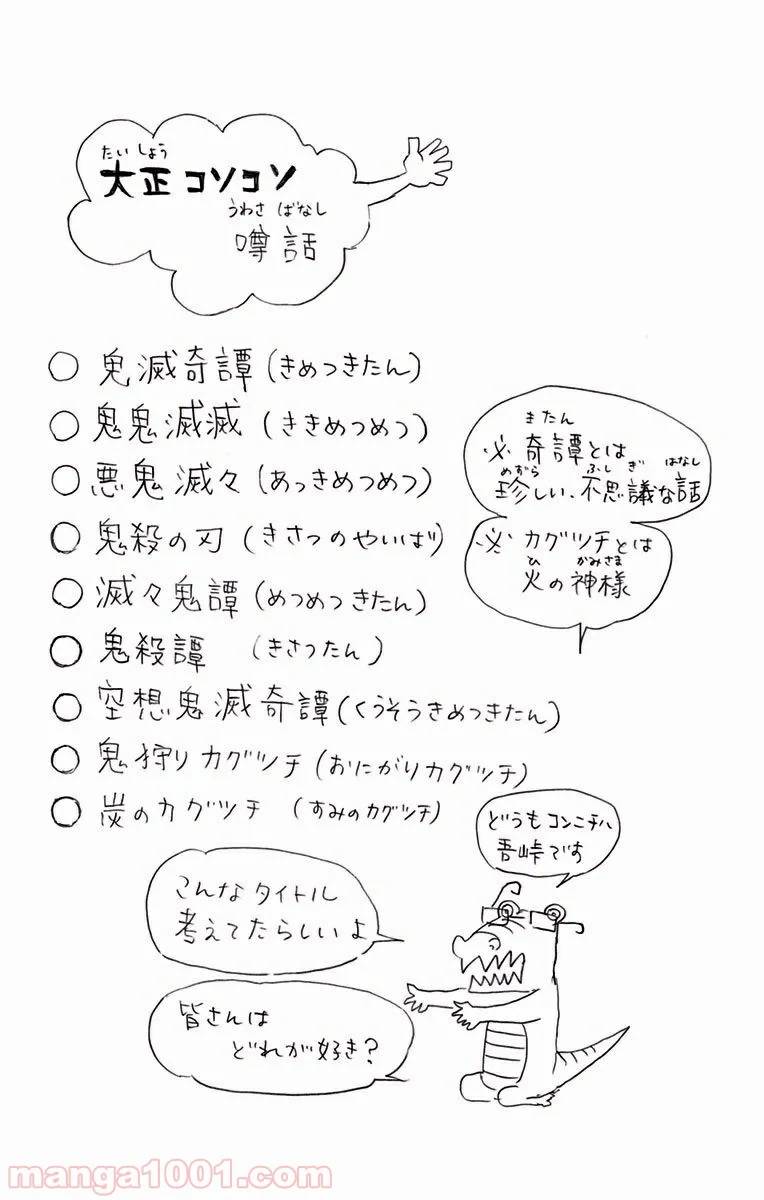 たいしょう
大正コソコソ
うわさばなし
噂話
○ 鬼滅奇譚(きめつきたん)
○ 鬼鬼滅滅(ききめつめつ)
○ 悪鬼滅々(あっきめつめつ)
○ 鬼殺の刃(きさつのやいば)
○ 滅々鬼譚(めつめつきたん)
○ 鬼殺譚(きさつたん)
○ 空想鬼滅奇譚(くうそうきめつきたん)
○ 鬼狩りカグツチ(おにがりカグツチ)
○ 炭のカグツチ(すみのカグツチ)
きたん
※奇譚とは
めずら ふしぎ はなし
珍しい、不思議な話
※カグツチとは
ひ かみさま
火の神様
どうもコンニチハ
吾峠です
こんなタイトル
考えてたらしいよ
皆さんは
どれが好き?
manga1001.com